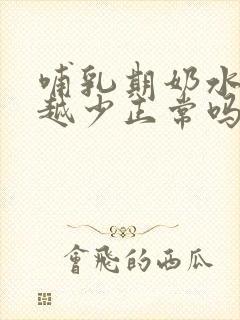 哺乳期奶水
越少正常吗
會飛的西瓜